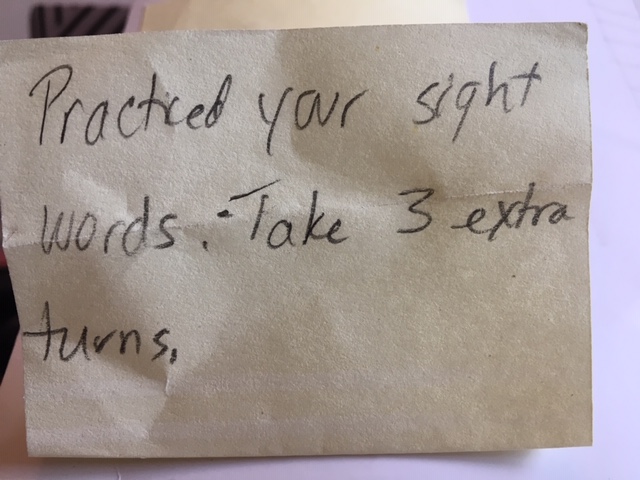 Practiced your sight
words. Take 3 extra
turns.